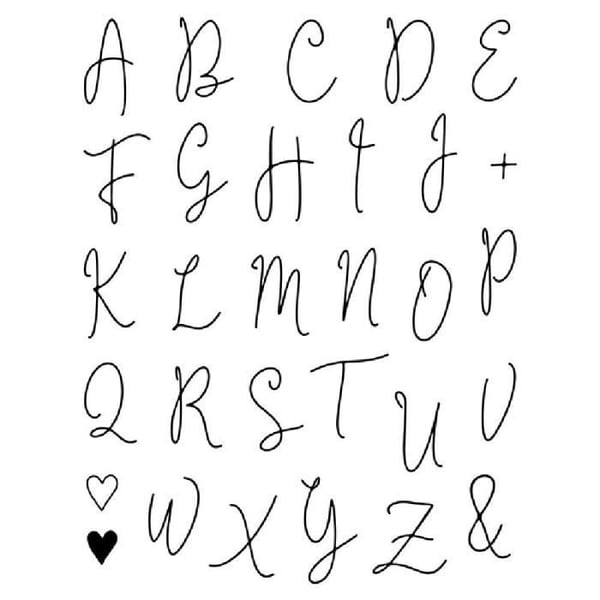 A B C D E
F G H I J +
K L M N O P
Q R S T U V
♡ W X Y Z &
♥